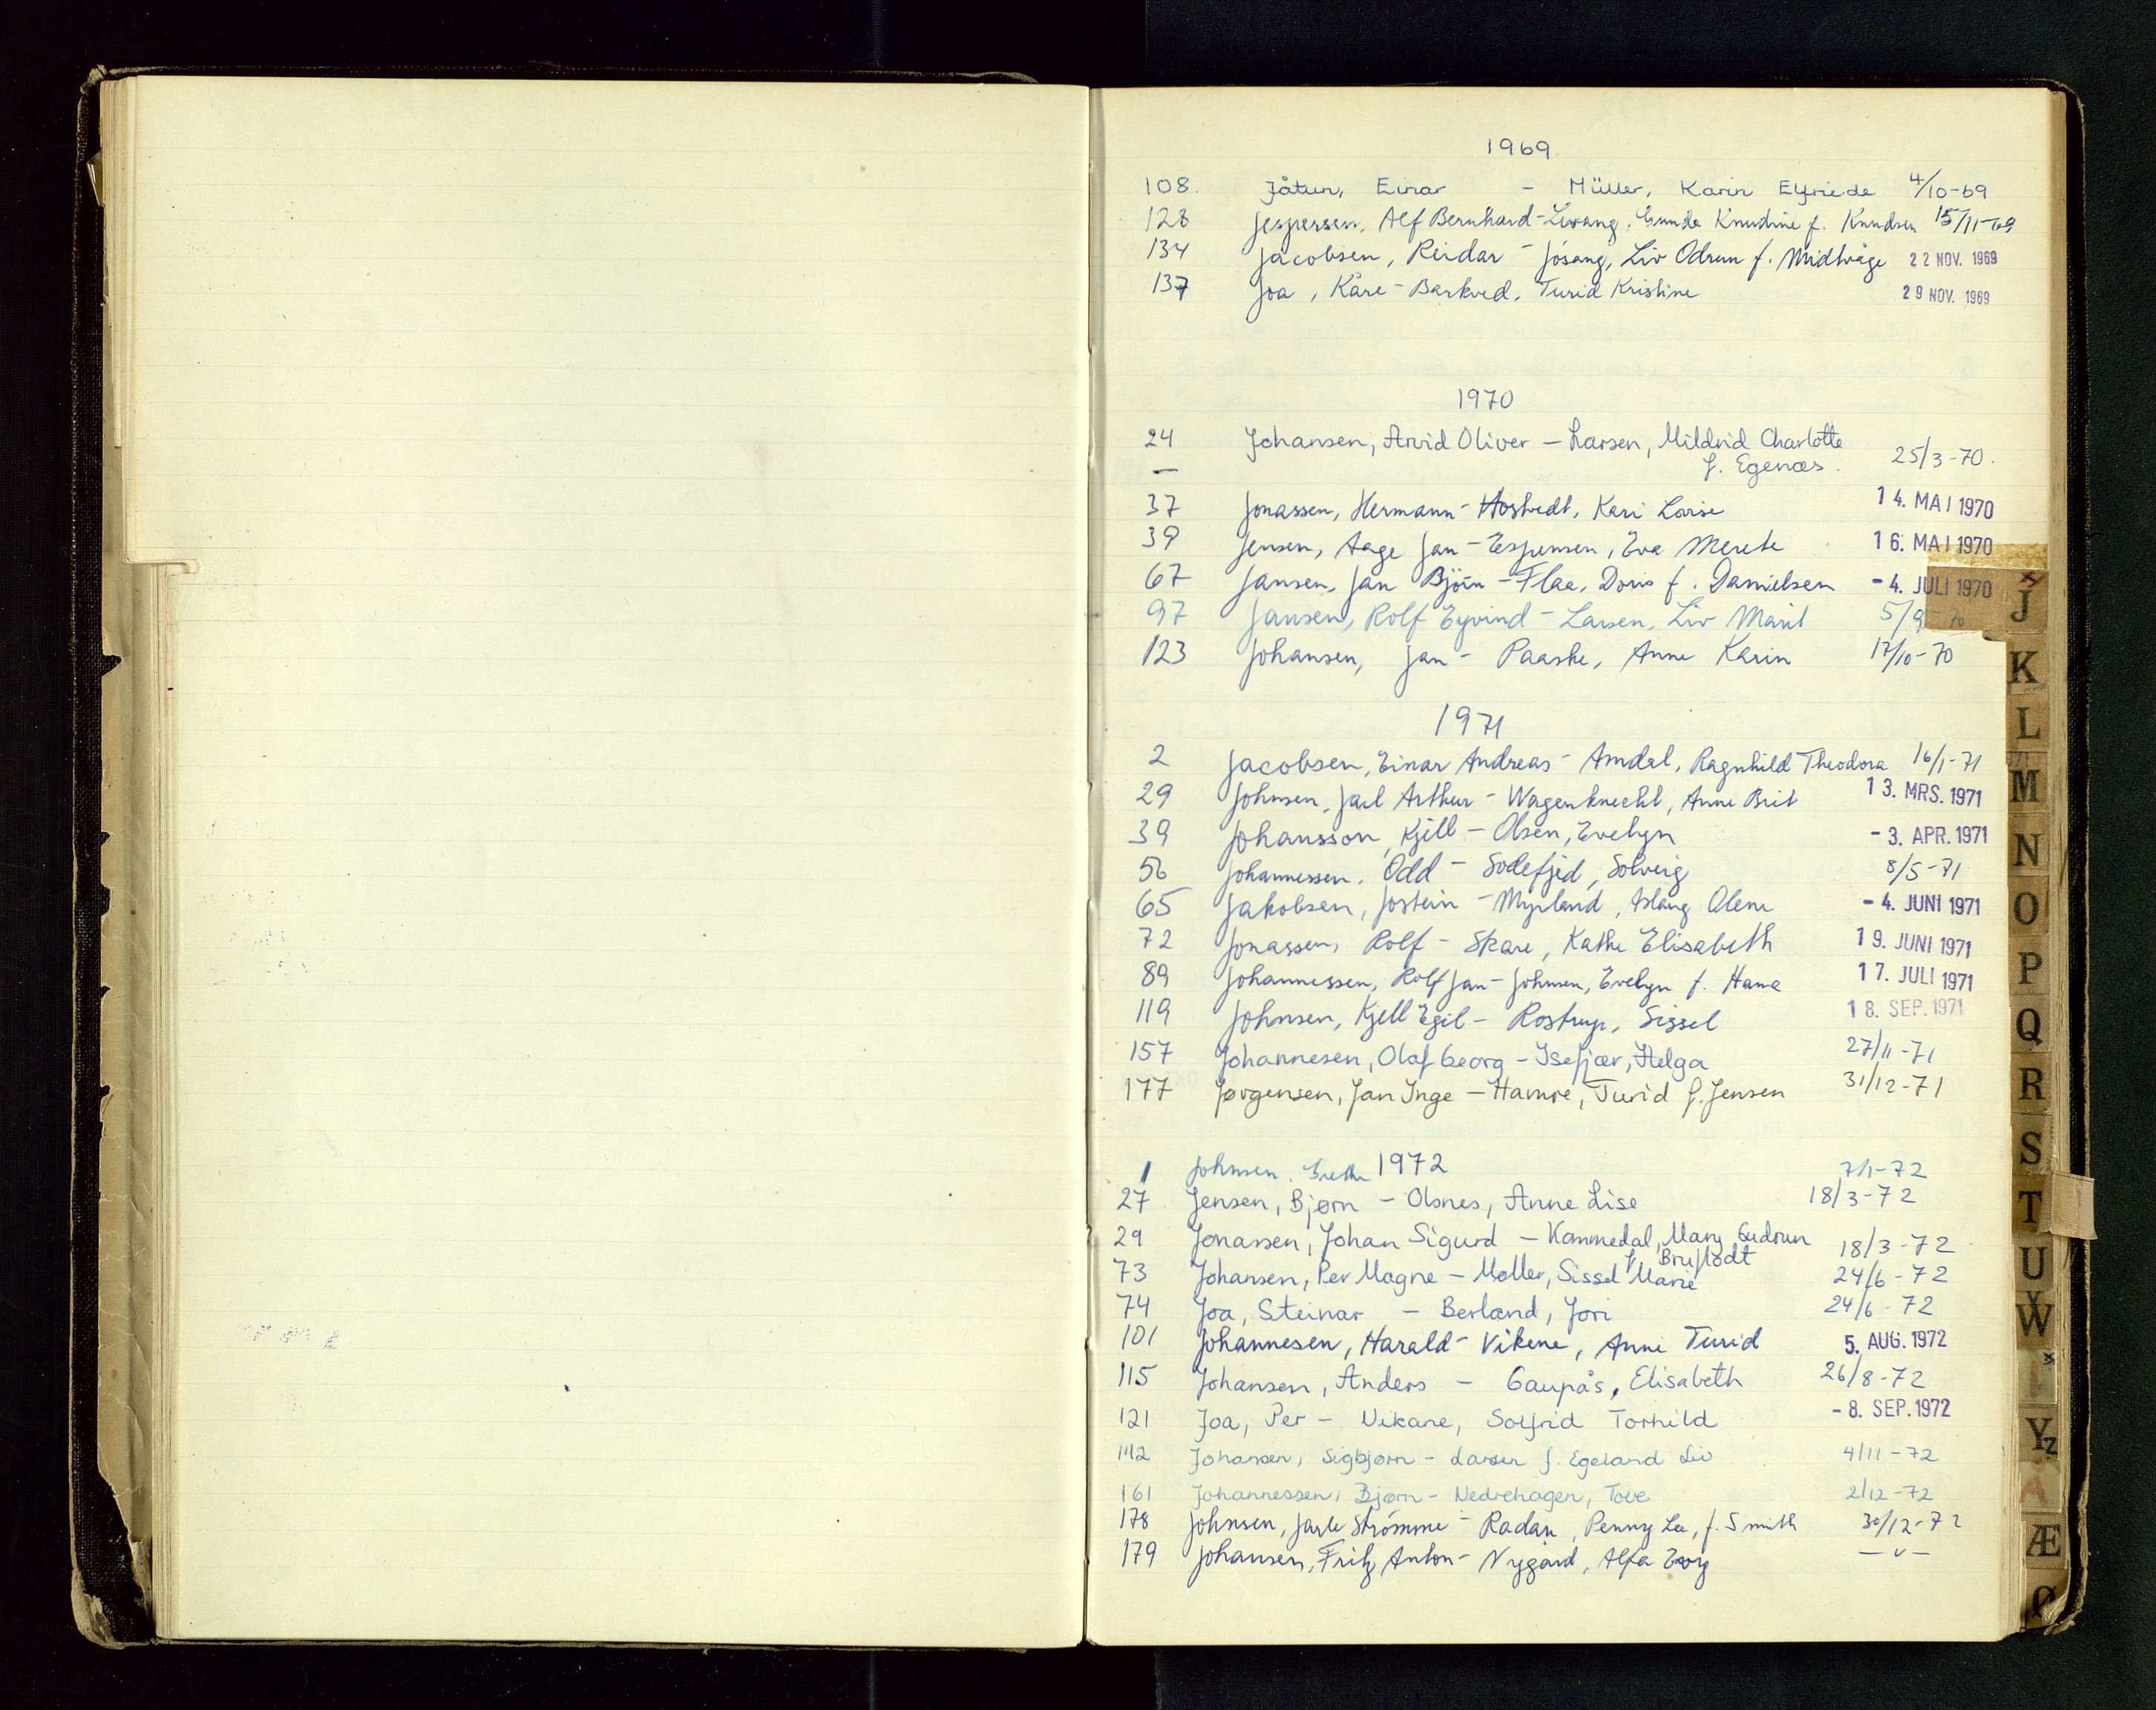 1969
108. Jåtun, Einar - Müller, Karin Elfriede 4/10-69
128 Jespersen, Alf Bernhard - Levang, Gunda Knudine f. Knudsen 15/11-69
134 Jacobsen, Reidar - Jósang, Liv Odrun f. Midtvåge 22 NOV. 1969
137 Joa, Kåre - Barkved, Turid Kristine 29 NOV. 1969
1970
24 Johansen, Arvid Oliver - Larsen, Mildrid Charlotte
— f. Egenæs. 25/3-70.
37 Jonassen, Hermann - Hostvedt, Kari Lovise 14. MAI 1970
39 Jensen, Aage Jan - Espensen, Eva Merete 16. MAI 1970
67 Jansen, Jan Björn - Flaa, Doris f. Danielsen -4. JULI 1970
97 Jansen, Rolf Eyvind - Larsen, Liv Marit 5/9-70
123 Johansen, Jan - Paaske, Anne Karin 17/10-70
1971
2 Jacobsen, Einar Andreas - Amdal, Ragnhild Theodora 16/1-71
29 Johnsen, Jarl Arthur - Wagenknecht, Anne Brit 13. MRS. 1971
39 Johansson, Kjell - Olsen, Evelyn -3. APR. 1971
56 Johannessen, Odd - Sodefjed, Solveig 8/5-71
65 Jakobsen, Jostein - Myrland, Aslaug Olene -4. JUNI 1971
72 Jonassen, Rolf - Skare, Kathe Elisabeth 19. JUNI 1971
89 Johannessen, Rolf Jan - Johnsen, Evelyn f. Hana 17. JULI 1971
119 Johnsen, Kjell Egil - Rostrup, Sissel 18. SEP. 1971
157 Johannesen, Olaf Georg - Isefjær, Helga 27/11-71
177 Jørgensen, Jan Inge - Hamre, Turid f. Jensen 31/12-71
1972
1 Johnsen, Grethe 7/1-72
27 Jensen, Bjørn - Olsnes, Anne Lise 18/3-72
29 Jonassen, Johan Sigurd - Kammedal, Mary Gudrun 18/3-72
f. Bruflodt
73 Johansen, Per Magne - Møller, Sissel Marie 24/6-72
74 Joa, Steinar - Berland, Jori 24/6-72
101 Johannesen, Harald - Vikene, Anne Turid 5. AUG. 1972
115 Johansen, Anders - Gaupås, Elisabeth 26/8-72
121 Joa, Per - Vikane, Solfrid Torhild -8. SEP. 1972
142 Johansen, Sigbjørn - Larsen f. Egeland Liv 4/11-72
161 Johannessen, Bjørn - Nedrehagen, Tove 2/12-72
178 Johnsen, Jarle Strömme - Radan, Penny Lee, f. Smith 30/12-72
179 Johansen, Fritz Anton - Nygård, Alfa —"—
J
K
L
M
N
O
P
Q
R
S
T
U
V
W
Y
Z
Æ
Ø